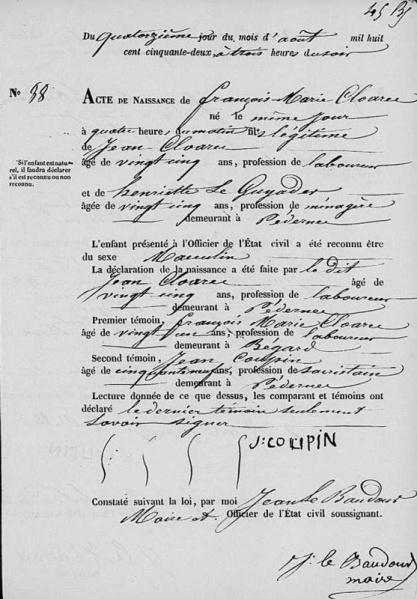 Du quatorzième jour du mois d'août mil huit
cent cinquante-deux, à trois heures du soir
No 38
ACTE DE NAISSANCE de françois Marie Cloarec
né le même jour
à quatre heures du matin fils légitime
de Jean Cloarec
âgé de vingt cinq ans, profession de laboureur
"Si l'enfant est naturel, il faudra déclarer s'il est reconnu ou non reconnu.
et de henriette Le Guyader
âgée de vingt cinq ans, profession de ménagère
demeurant à Pédernec
L'enfant présenté à l'Officier de l'État civil a été reconnu être
du sexe Masculin
La déclaration de la naissance a été faite par le dit
Jean Cloarec âgé de
vingt cinq ans, profession de laboureur
demeurant à Pédernec
Premier témoin, françois Marie Cloarec
âgé de vingt ans, profession de laboureur
demeurant à Bégard
Second témoin, Jean Coupin
âgé de cinquante neuf ans, profession de sacristain
demeurant à Pédernec
Lecture donnée de ce que dessus, les comparant et témoins ont
déclaré le dernier témoin seulement
savoir signer
J: COUPIN
Constaté suivant la loi, par moi Jean le Baudour
Maire et Officier de l'État civil soussignant.
J. le Baudour
maire